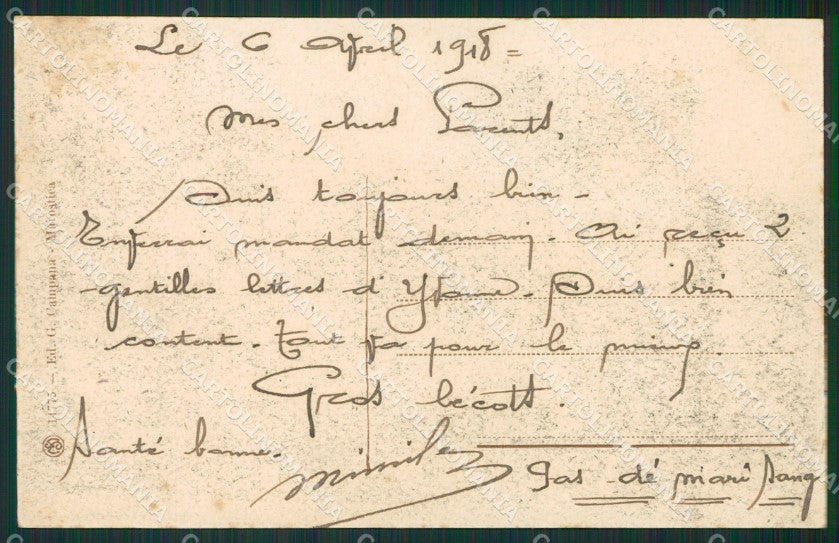 Le 6 Avril 1918 =
Mes chers Parents,
Suis toujours bien -
Enverrai mandat demain. Ai reçu 2
gentilles lettres d'Yvonne. Suis bien
content. Tout va pour le mieux.
Gros bécots.
Santé bonne.
Pas dé mari
Ed. G. Campana - Marostica
CARTOLINOMANIA